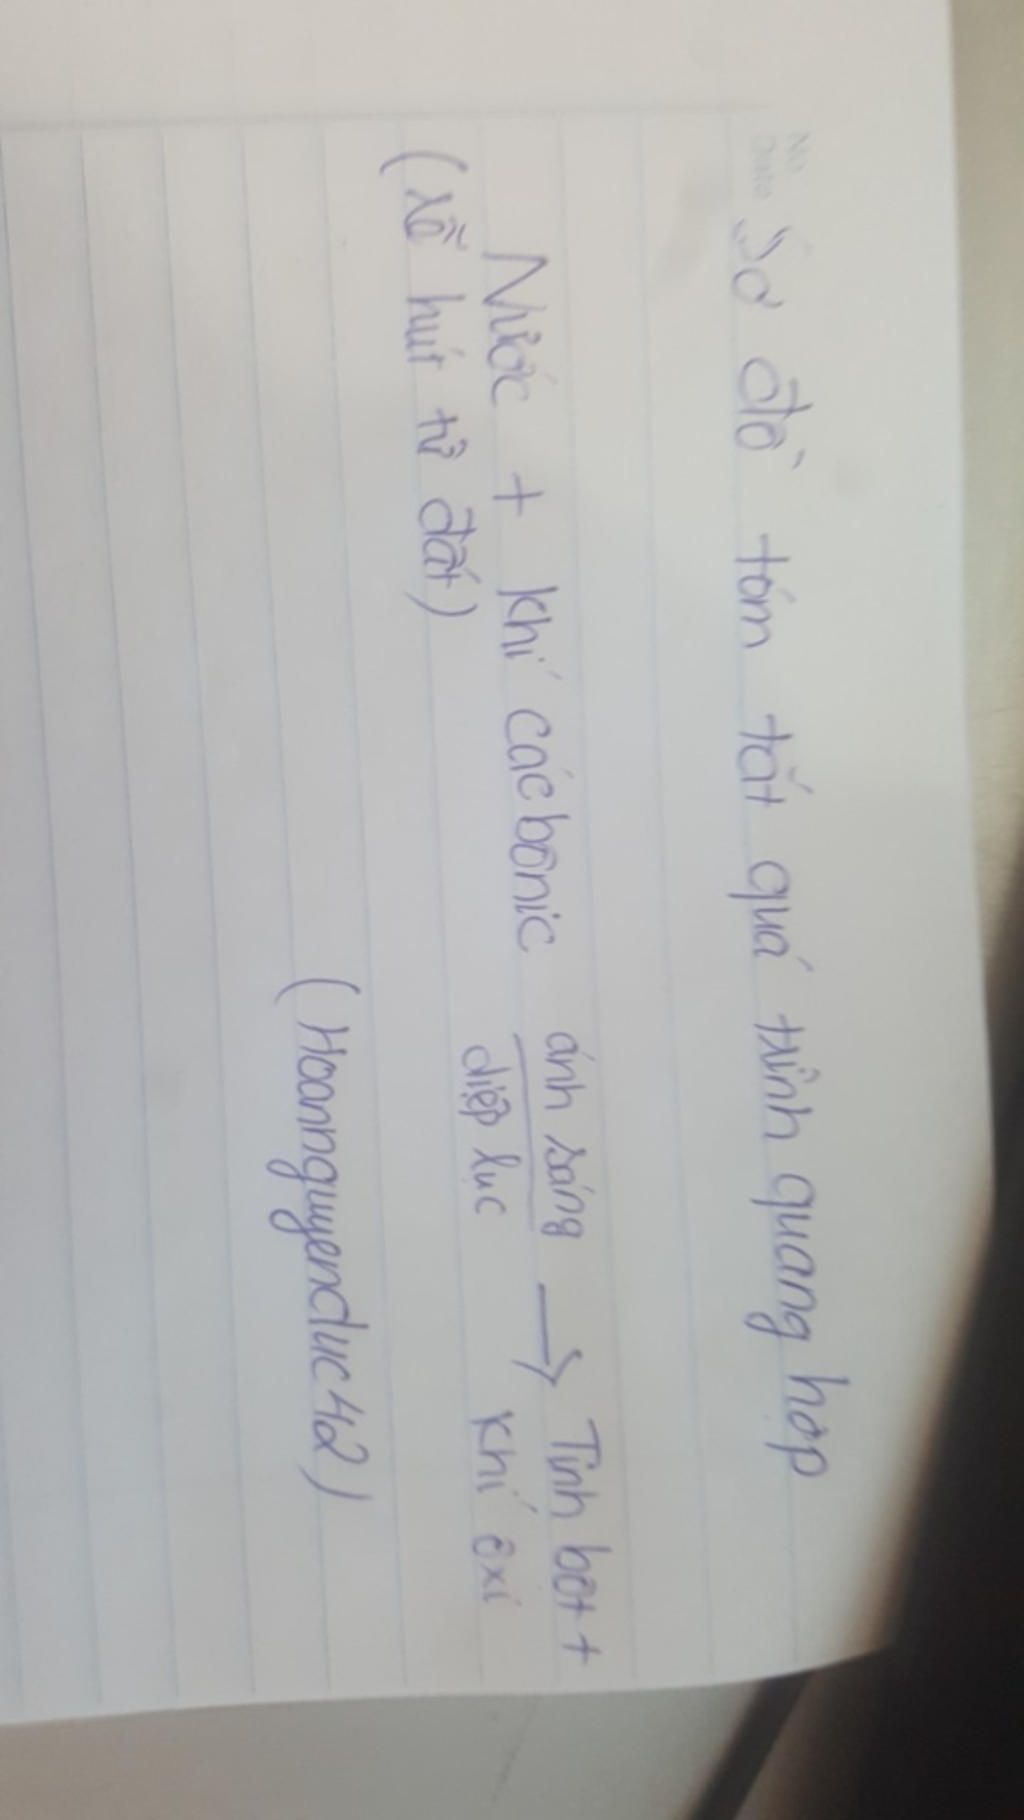 No.
Date
Sơ đồ tóm tắt quá trình quang hợp
Nước + khí cácbônic ánh sáng → Tinh bột +
(rễ hút từ đất) diệp lục khí ôxi
(Hoannguyenduc42)